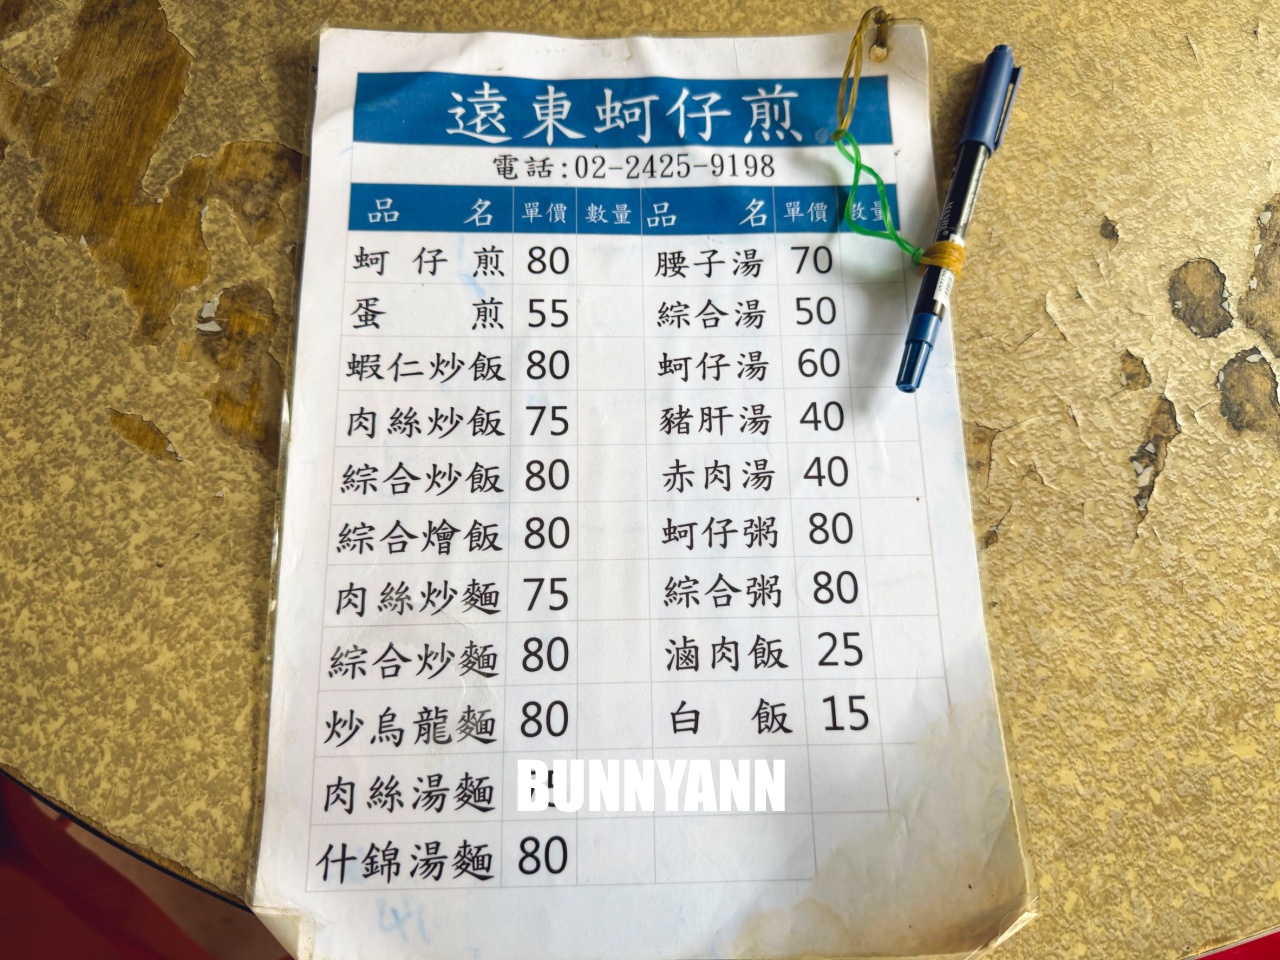 遠東蚵仔煎
電話:02-2425-9198
品名 單價 數量 品名 單價 數量
蚵仔煎 80 腰子湯 70
蛋煎 55 綜合湯 50
蝦仁炒飯 80 蚵仔湯 60
肉絲炒飯 75 豬肝湯 40
綜合炒飯 80 赤肉湯 40
綜合燴飯 80 蚵仔粥 80
肉絲炒麵 75 綜合粥 80
綜合炒麵 80 滷肉飯 25
炒烏龍麵 80 白飯 15
肉絲湯麵
BUNNYANN
什錦湯麵 80